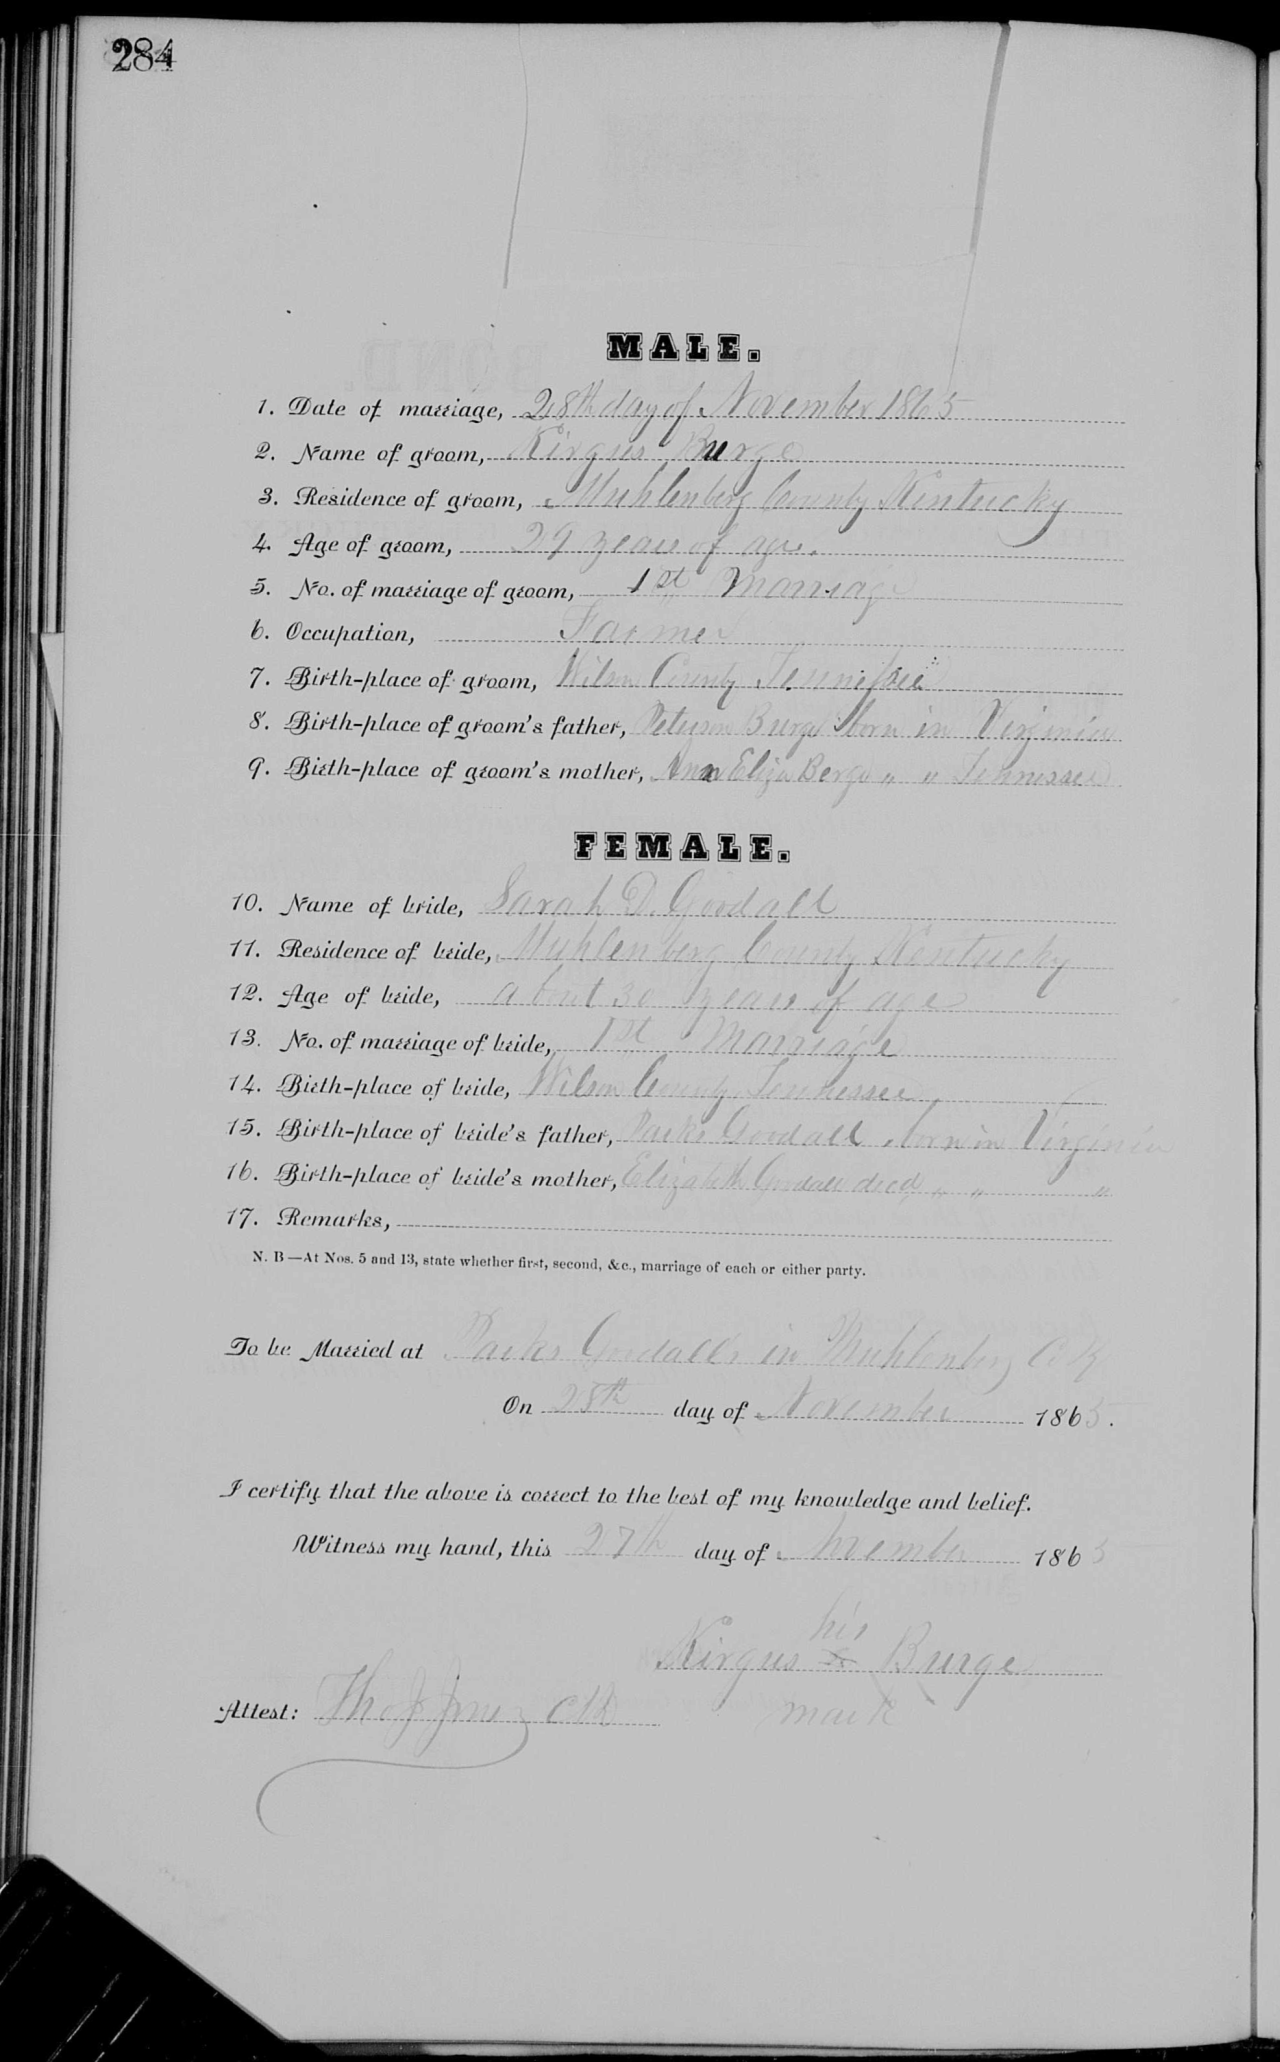 284
MALE.
1. Date of marriage, 28th day of November 1865
2. Name of groom, Kirgus Burge
3. Residence of groom, Muhlenberg County Kentucky
4. Age of groom, 29 years of age.
5. No. of marriage of groom, 1st Marriage
6. Occupation, Farmer
7. Birth-place of groom, Wilson County Tennessee
8. Birth-place of groom's father, Peterson Burge born in Virginia
9. Birth-place of groom's mother, Ann Eliza Berge " " Tennessee
FEMALE.
10. Name of bride, Sarah D. Goodall
11. Residence of bride, Muhlenberg County Kentucky
12. Age of bride, about 30 years of age
13. No. of marriage of bride, 1st Marriage
14. Birth-place of bride, Wilson County Tennessee
15. Birth-place of bride's father, Parks Goodall born in Virginia
16. Birth-place of bride's mother, Elizabeth Goodall decd " " "
17. Remarks,
N. B—At Nos. 5 and 13, state whether first, second, &c., marriage of each or either party.
To be Married at Parks Goodalls in Muhlenberg C K
On 28th day of November 1865.
I certify that the above is correct to the best of my knowledge and belief.
Witness my hand, this 27th day of November 1865
his
Kirgus x Burge
mark
Attest: Tho J Jones Clk